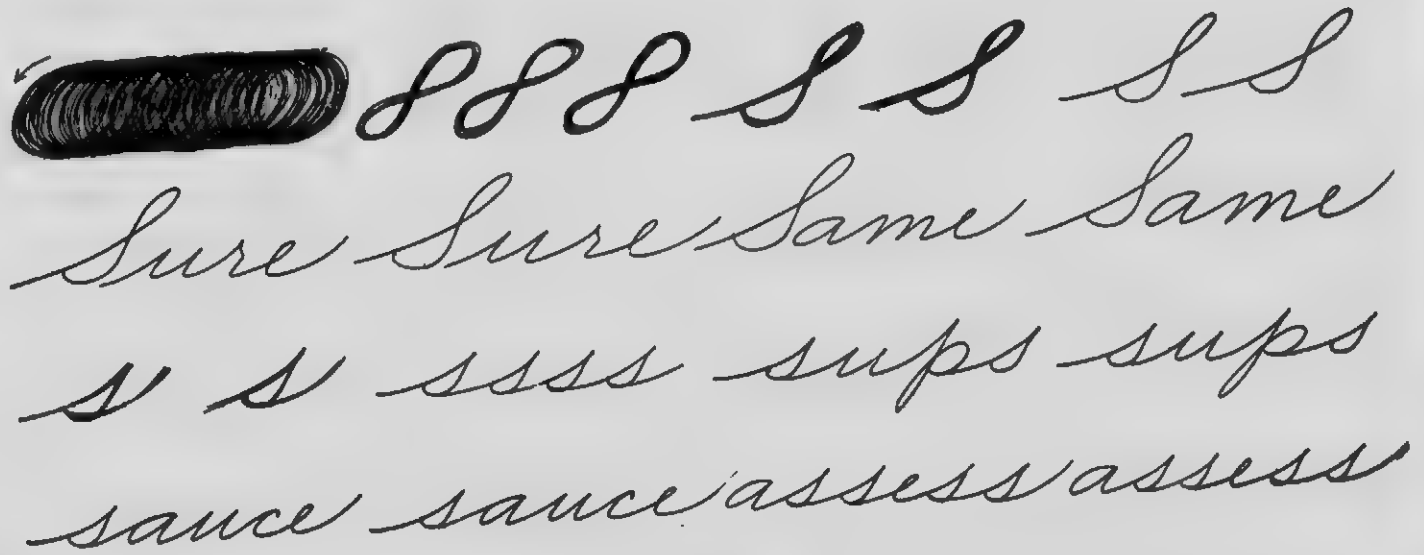 8 8 8 S S S S
Sure Sure Same Same
s s ssss sups sups
sauce sauce assess assess